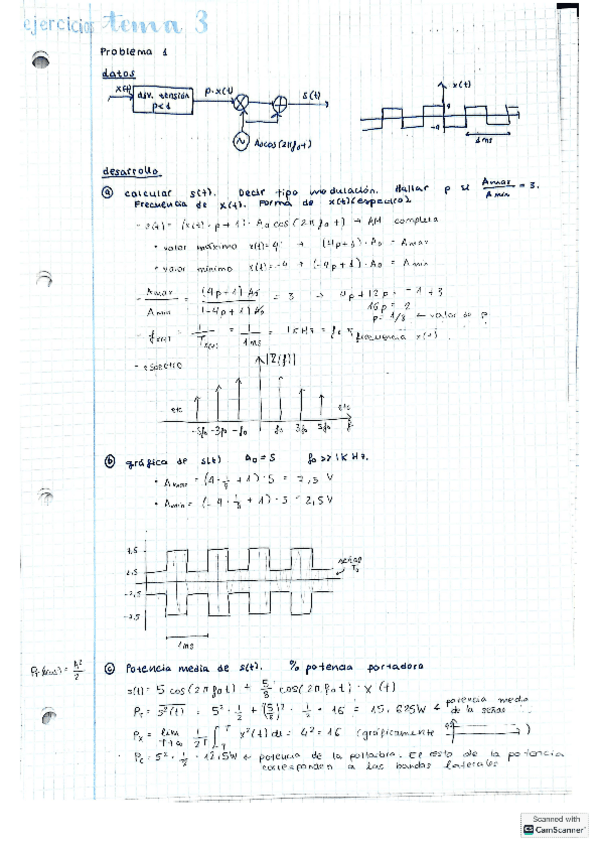 ejercicios tema 3
Problema 1
datos
x(t)
div. tensión
p<1
p·x(t)
s(t)
A₀cos(2πf₀t)
x(t)
4
-4
1ms
desarrollo
ⓐ calcular s(t). Decir tipo modulación. Hallar p si Amax/Amin = 3.
Frecuencia de x(t). Forma de x(t)(espectro).
- s(t) = (x(t)·p+1)·A₀cos(2πf₀t) → AM completa
• valor máximo x(t)=4 → (4p+1)·A₀ = Amax
• valor mínimo x(t)=-4 → (-4p+1)·A₀ = Amin
- Amax/Amin = (4p+1)A₀/(-4p+1)A₀ = 3 → 4p+12p = -1+3
16p = 2
p = 1/8 ← valor de p
- fx(t) = 1/Tx(t) = 1/1ms = 1KHz = f₀
frecuencia x(t).
- espectro
etc
-5f₀ -3f₀ -f₀ f₀ 3f₀ 5f₀ f
etc
ⓑ gráfica de s(t) A₀=5 f₀>>1KHz.
• Amax = (4·1/8+1)·5 = 7,5 V
• Amin = (-4·1/8+1)·5 = 2,5V
7,5
2,5
-2,5
-7,5
1ms
ⓒ Potencia media de s(t). % potencia portadora
s(t) = 5cos(2πf₀t) + 5/8 cos(2πf₀t)·x(t)
= 5²·1/2 + (5/8)²·1/2·16 = 15,625W ← potencia media
de la señal
Px = lim T→∞ 1/2T ∫ x²(t)dt = 4² = 16 (gráficamente
Pc = 5²·1/2 = 12,5W ← potencia de la portadora. El resto de la potencia
corresponden a las bandas laterales
Scanned with
CamScanner